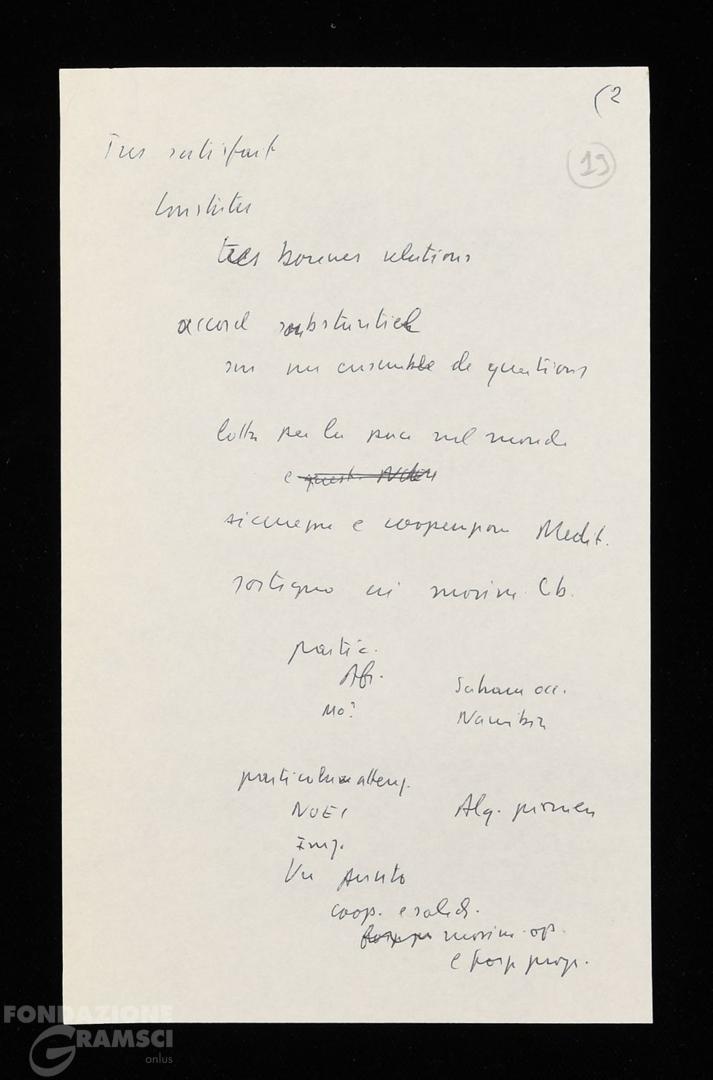 (2
19
Tres satisfait
Constater
tres bonnes relations
accord substantiel
sur un ensemble de questions
lotta per la pace nel mondo
e
sicurezza e cooperazione Medit.
sostegno ai movim. Lb.
partic.
Afr. Sahara occ.
Mo? Namibia
particolare attenz.
NOEI Alg. pionier
Impj.
Vu Aiuto
coop. e solid.
movim. op.
e forze progr.
FONDAZIONE
GRAMSCI
onlus